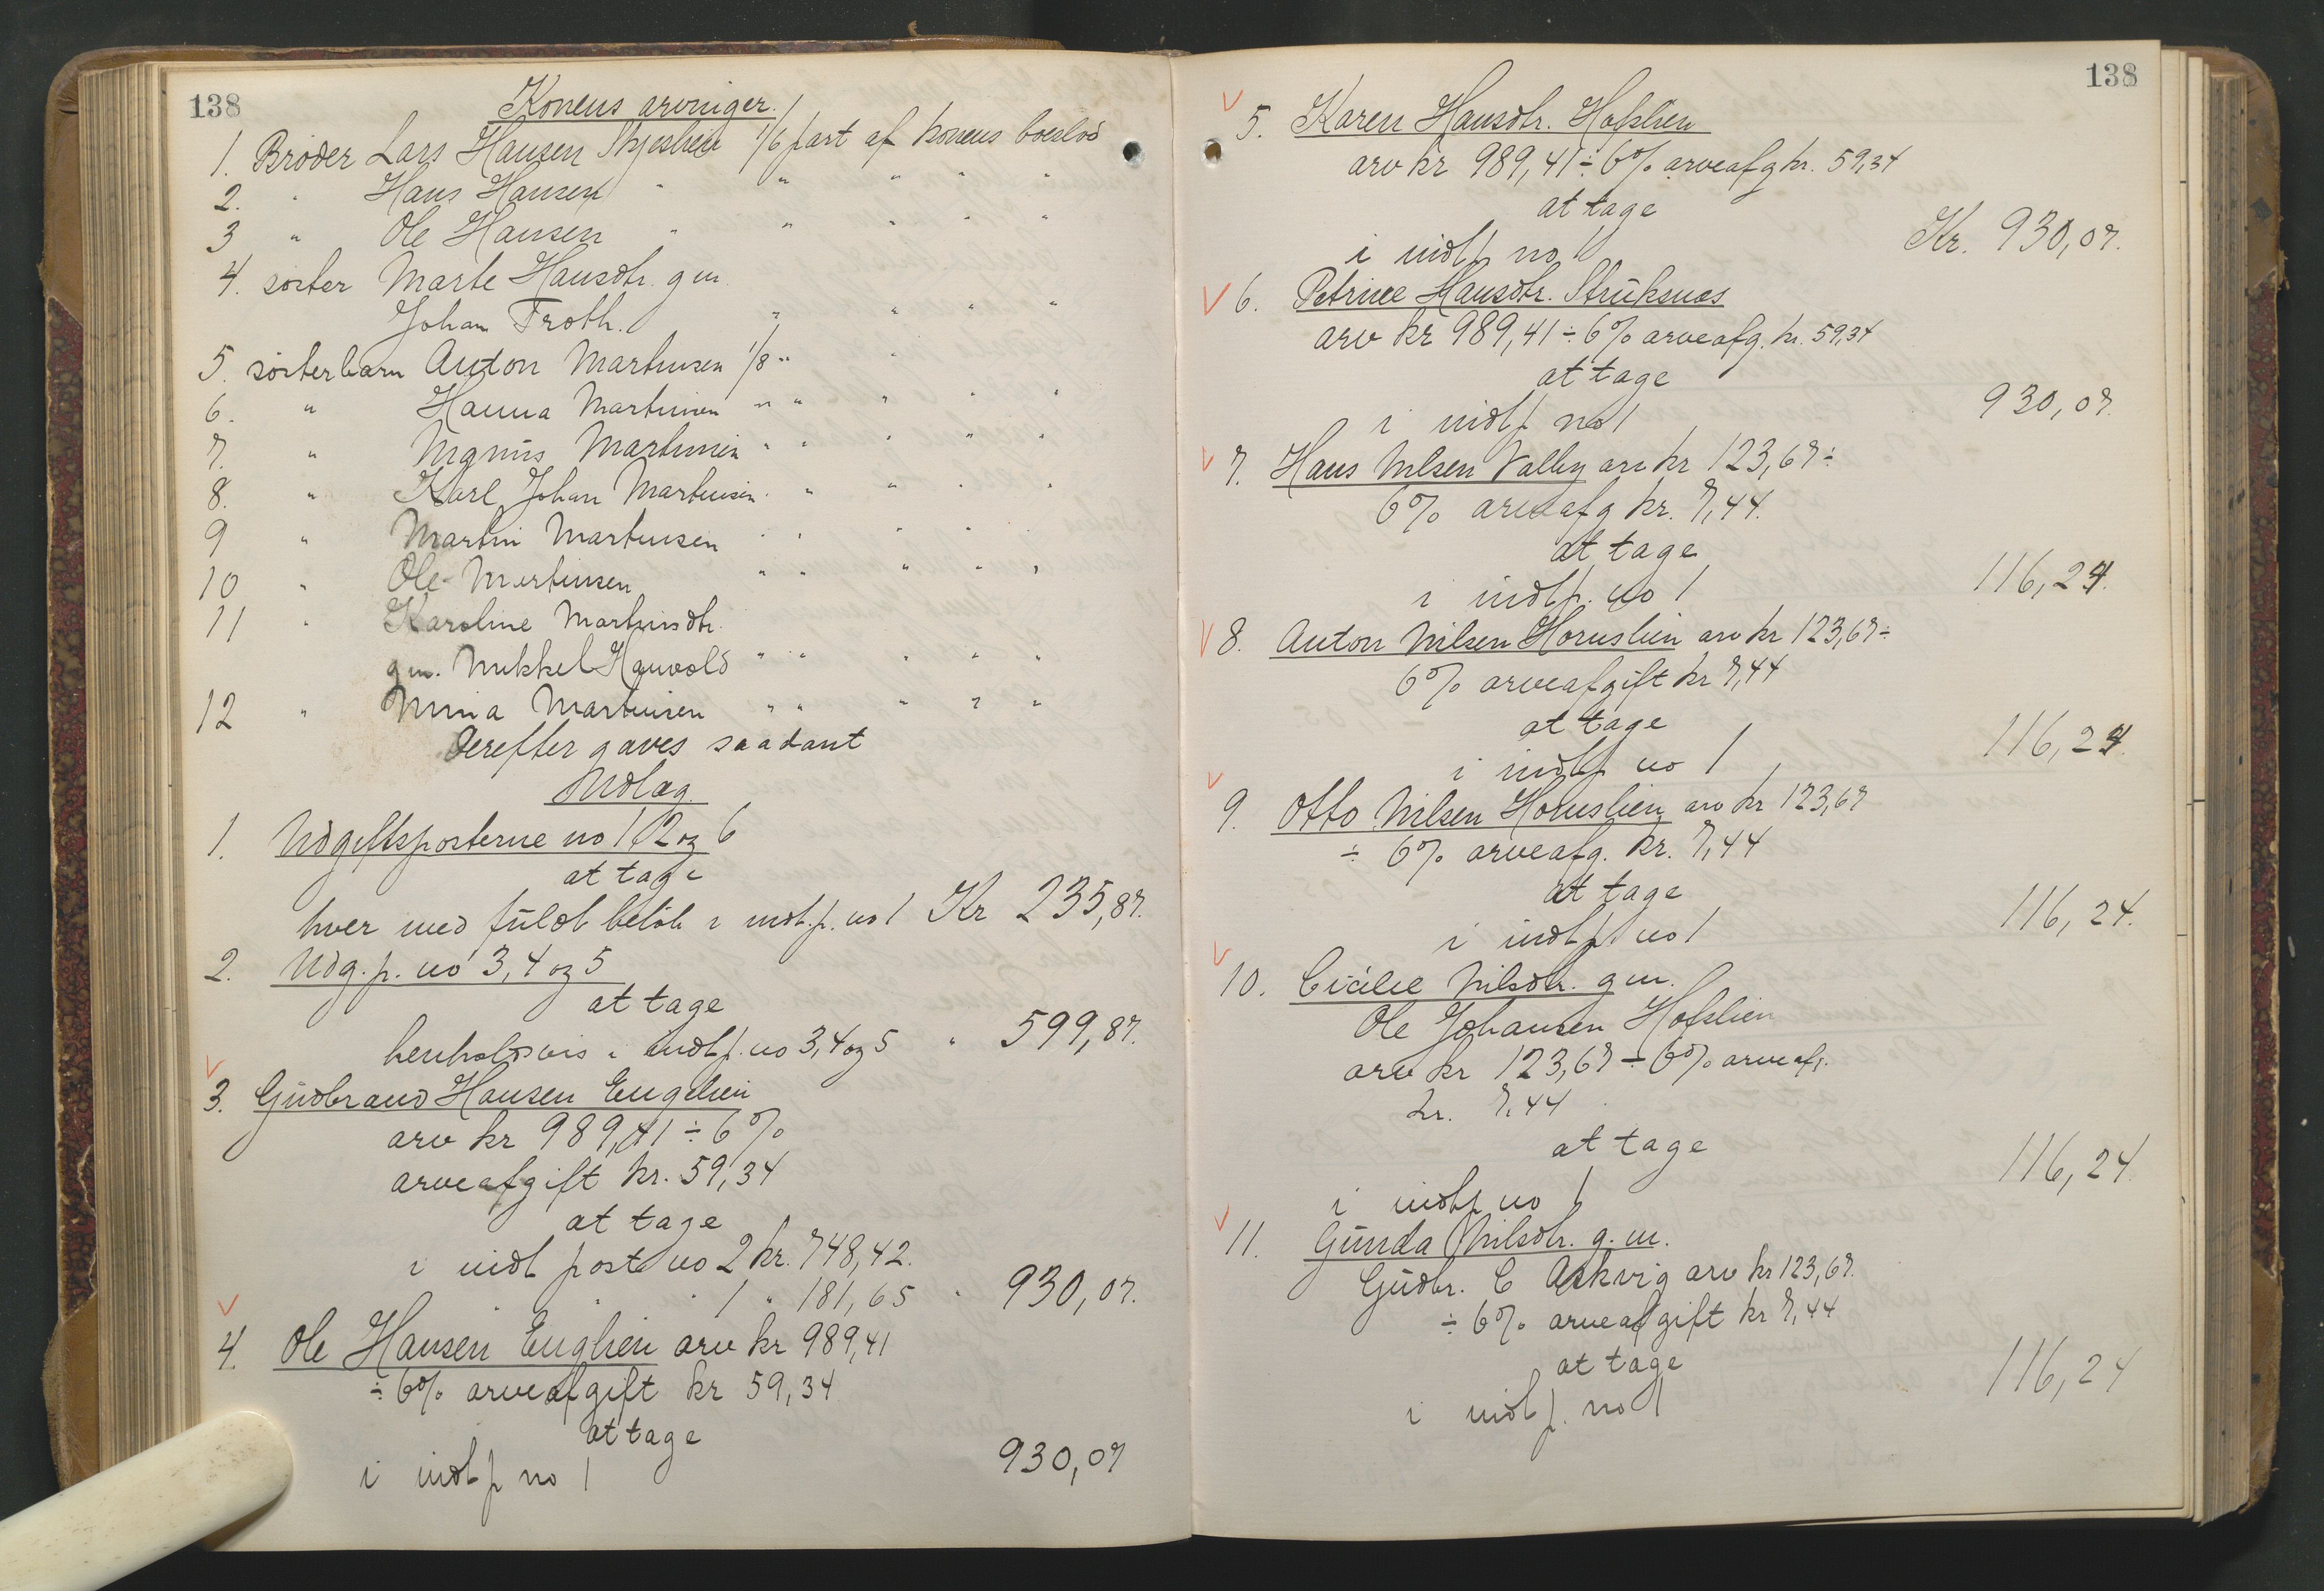 138
Konens arvinger.
1. Broder Lars Hansen 1/6 part af konens boeslod
2. " Hans Hansen " " " " "
3 " Ole Hansen " " " " "
4. søster Marte Hansdtr. gm.
Johan Froth. " " " "
5. søsterbarn Anton Martinsen 1/8 " "
6. " Hanna Martinsen " " " " "
7. " Magnus Martinsen " " " " "
8. " Karl Johan Martinsen. " " " "
9 " Martin Martinsen " " " " "
10 " Ole Martinsen " " " " "
11 " Karoline Martinsdtr.
gm. Mikkel Hauvold " " " " "
12 " Mina Martinsen " " " " "
Derefter gaves saadant
Udlæg.
1. Udgiftsposterne no 1, 2 og 6
at tage
hver med fuldt beløb i indt.p. no 1 Kr 235,87.
2. Udg.p. no 3,4 og 5
at tage
henholdsvis i indt p. no 3,4 og 5 " 599,87.
3. Gudbrand Hansen Englien
arv kr 989,41 ÷ 6%
arveafgift kr. 59,34
at tage
i indt post no 2 kr. 748,42.
" " " 1 " 181,65 " 930,07.
4. Ole Hansen Englien arv kr 989,41
÷ 6% arveafgift kr 59,34
at tage
i indt p no 1 930,07
138
5. Karen Hansdtr. Hofslien
arv kr 989,41 ÷ 6% arveafg kr. 59,34
at tage
i indt p no 1 Kr. 930,07.
6. Petrine Hansdtr. Struksnæs
arv kr 989,41 ÷ 6% arveafg. kr. 59,34
at tage
i indt p no 1 930,07.
7. Hans Nilsen Valby arv kr 123,67 ÷
6% arveafg kr. 7,44.
at tage
i indt p. no 1 116,24.
8. Anton Nilsen Hornslien arv kr 123,67 ÷
6% arveafgift kr 7,44
at tage
i indt p no 1 116,24.
9. Otto Nilsen Hornslien arv kr 123,67
÷ 6% arveafg. kr. 7,44
at tage
i indt p no 1 116,24.
10. Cicilie Nilsdtr. gm.
Ole Johansen Hofslien
arv kr 123,67 ÷ 6% arveafg.
kr. 7,44
at tage
i indt p no 1 116,24.
11. Gunda Nilsdtr. g.m.
Gudbr. C Askvig arv kr 123,67.
÷ 6% arveafgift kr 7,44
at tage
i indt p. no 1 116,24